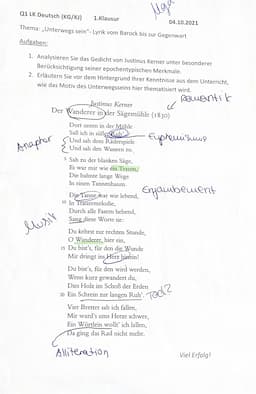 Q1 LK Deutsch (KG/KJ) 1.Klausur 04.10.2021
Thema: „Unterwegs sein“- Lyrik vom Barock bis zur Gegenwart
Aufgaben:
1. Analysieren Sie das Gedicht von Justinus Kerner unter besonderer
Berücksichtigung seiner epochentypischen Merkmale.
2. Erläutern Sie vor dem Hintergrund Ihrer Kenntnisse aus dem Unterricht,
wie das Motiv des Unterwegsseins hier thematisiert wird.
Romantik
Justinus Kerner
Der Wanderer in der Sägemühle (1830)
Dort unten in der Mühle
Saß ich in süßer Ruh'
Euphemismus
Anapher
Und sah dem Räderspiele
Und sah den Wassern zu.
5 Sah zu der blanken Säge,
Es war mir wie ein Traum,
Die bahnte lange Wege
In einen Tannenbaum.
Enjambement
Die Tanne war wie lebend,
10 In Trauermelodie,
Durch alle Fasern bebend,
Sang diese Worte sie:
Musik
Du kehrst zur rechten Stunde,
O Wanderer, hier ein,
15 Du bist's, für den die Wunde
Mir dringt ins Herz hinein!
Du bist's, für den wird werden,
Wenn kurz gewandert du,
Dies Holz im Schoß der Erden
20 Ein Schrein zur langen Ruh'.
Tod?
Vier Bretter sah ich fallen,
Mir ward's ums Herze schwer,
Ein Wörtlein wollt' ich lallen,
Da ging das Rad nicht mehr.
Alliteration
Viel Erfolg!